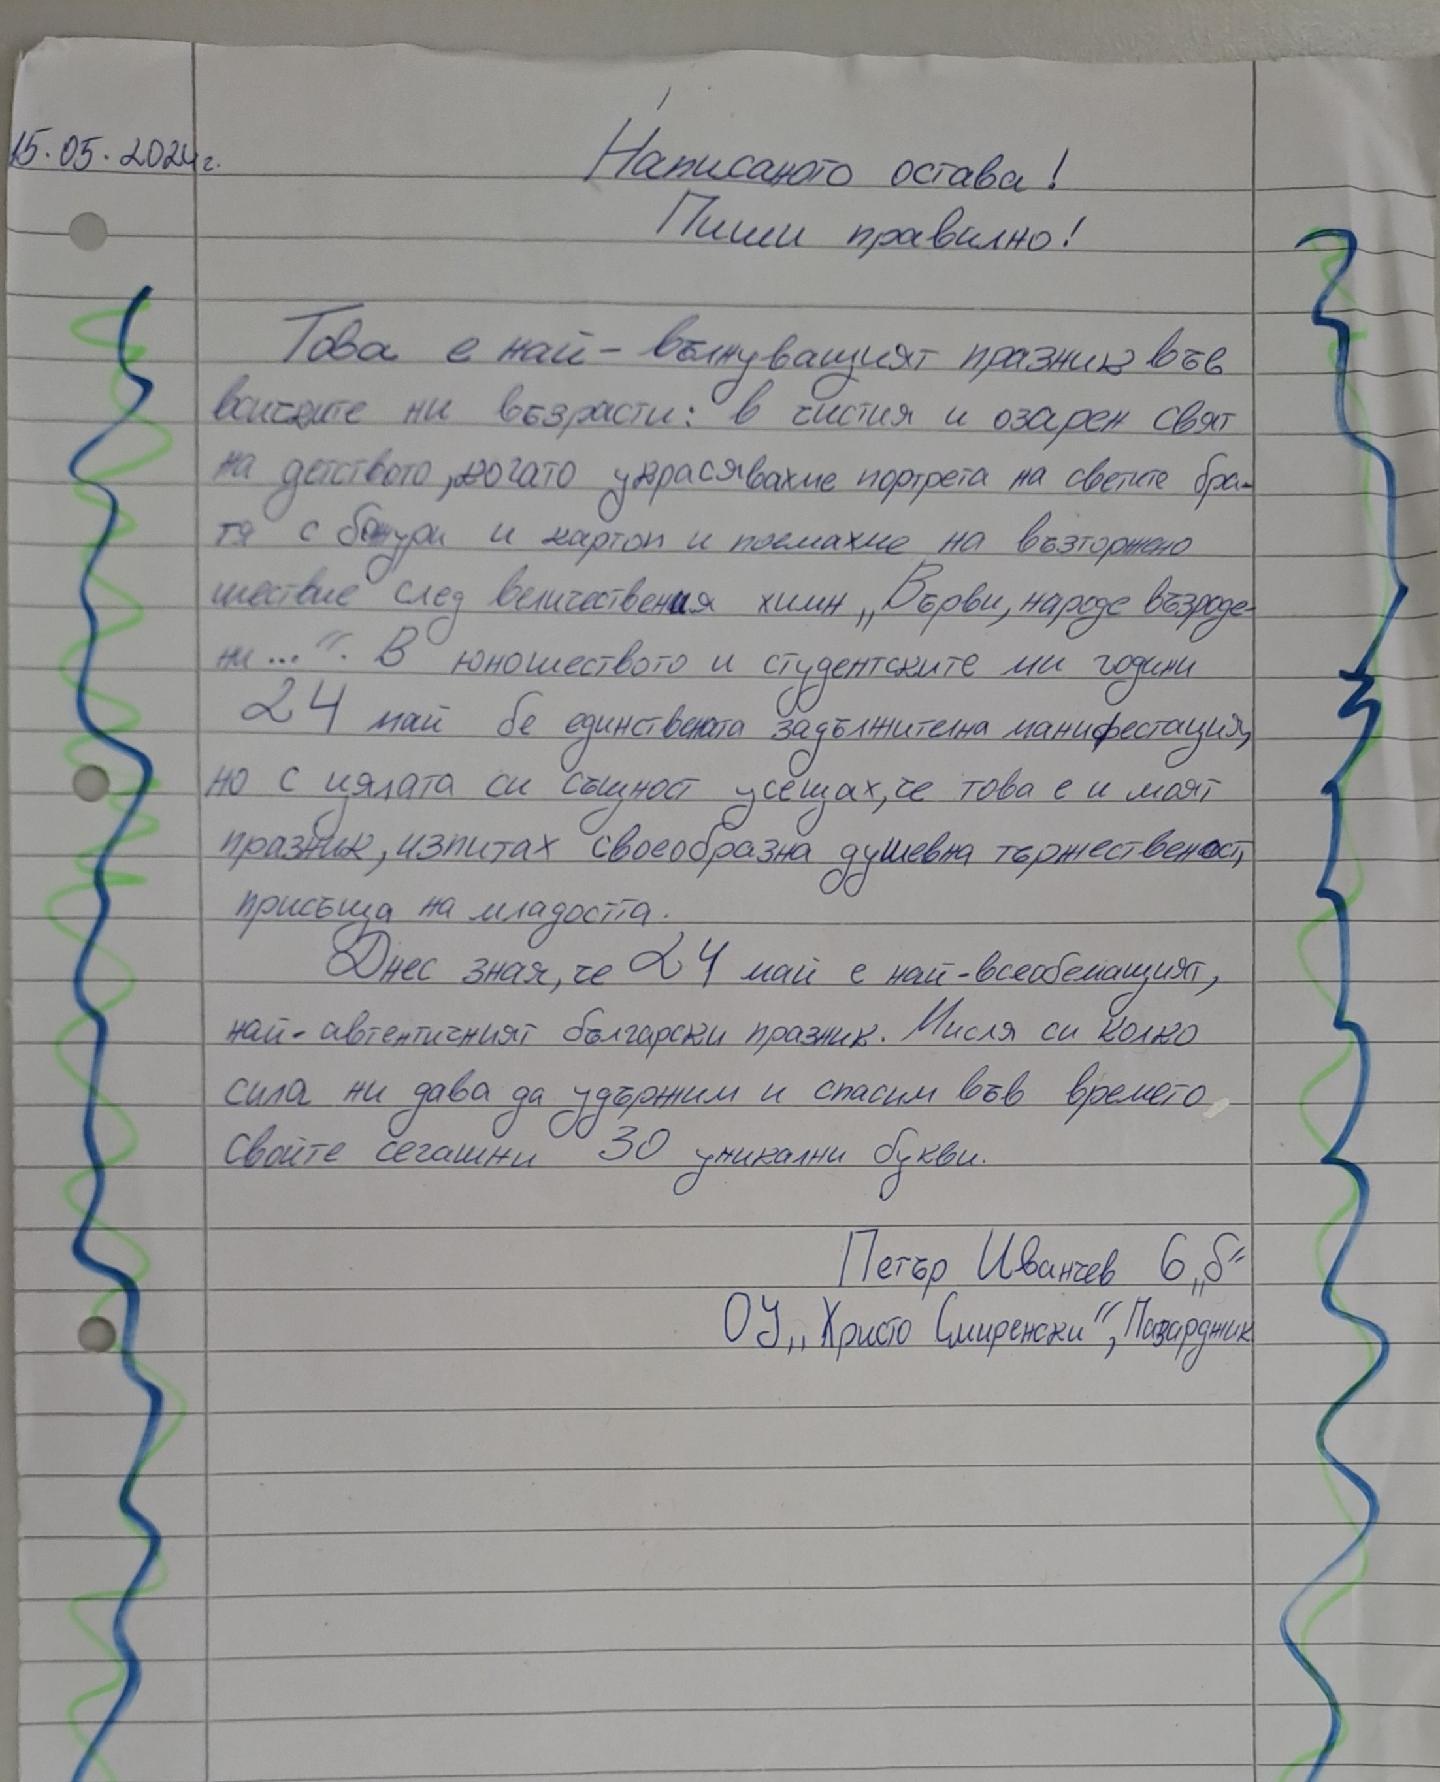 15.05.2024г.
Написаното остава!
Пиши правилно!
Това е най-вълнуващият празник във
всичките ни възрасти: в чистия и озарен свят
на детството, когато украсявахме портрета на светите бра-
тя с божури и картон и поемахме на възторжено
шествие след величествения химн „Върви, народе възроде-
ни...“. В юношеството и студентските ми години
24 май бе единствената задължителна манифестация,
но с цялата си същност усещах, че това е и моят
празник, изпитах своеобразна душевна тържественост,
присъща на младостта.
Днес зная, че 24 май е най-всеобемащият,
най-автентичният български празник. Мисля си колко
сила ни дава да удържим и спасим във времето
своите сегашни 30 уникални букви.
Петър Иванчев 6 „б“
ОУ „Христо Смиренски“, Пазарджик